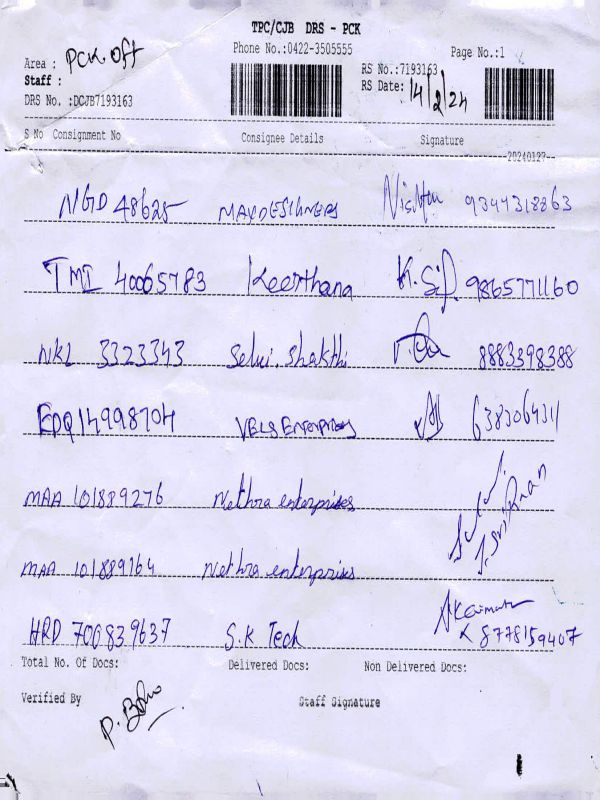 TPC/CJB DRS - PCK
Phone No.:0422-3505555 Page No.:1
Area : PCK. Off
Staff :
DRS No. :DCJB7193163
RS No.:7193163
RS Date: 14/2/24
S No Consignment No Consignee Details Signature
2024012?
NGD 48625 MAXDESIGNERS 9344318863
TMI 40065783 Keerthana 9865771160
NKL 3323343 Selvi. Shakthi 8883398388
EDQ14998704 VELS Enterprises 6383064311
MAA 101889276 Nethra enterprises
MAA 101889164 Nethra enterprises
HRD 700839637 S.K Tech 8778159407
Total No. Of Docs: Delivered Docs: Non Delivered Docs:
Verified By Staff Signature